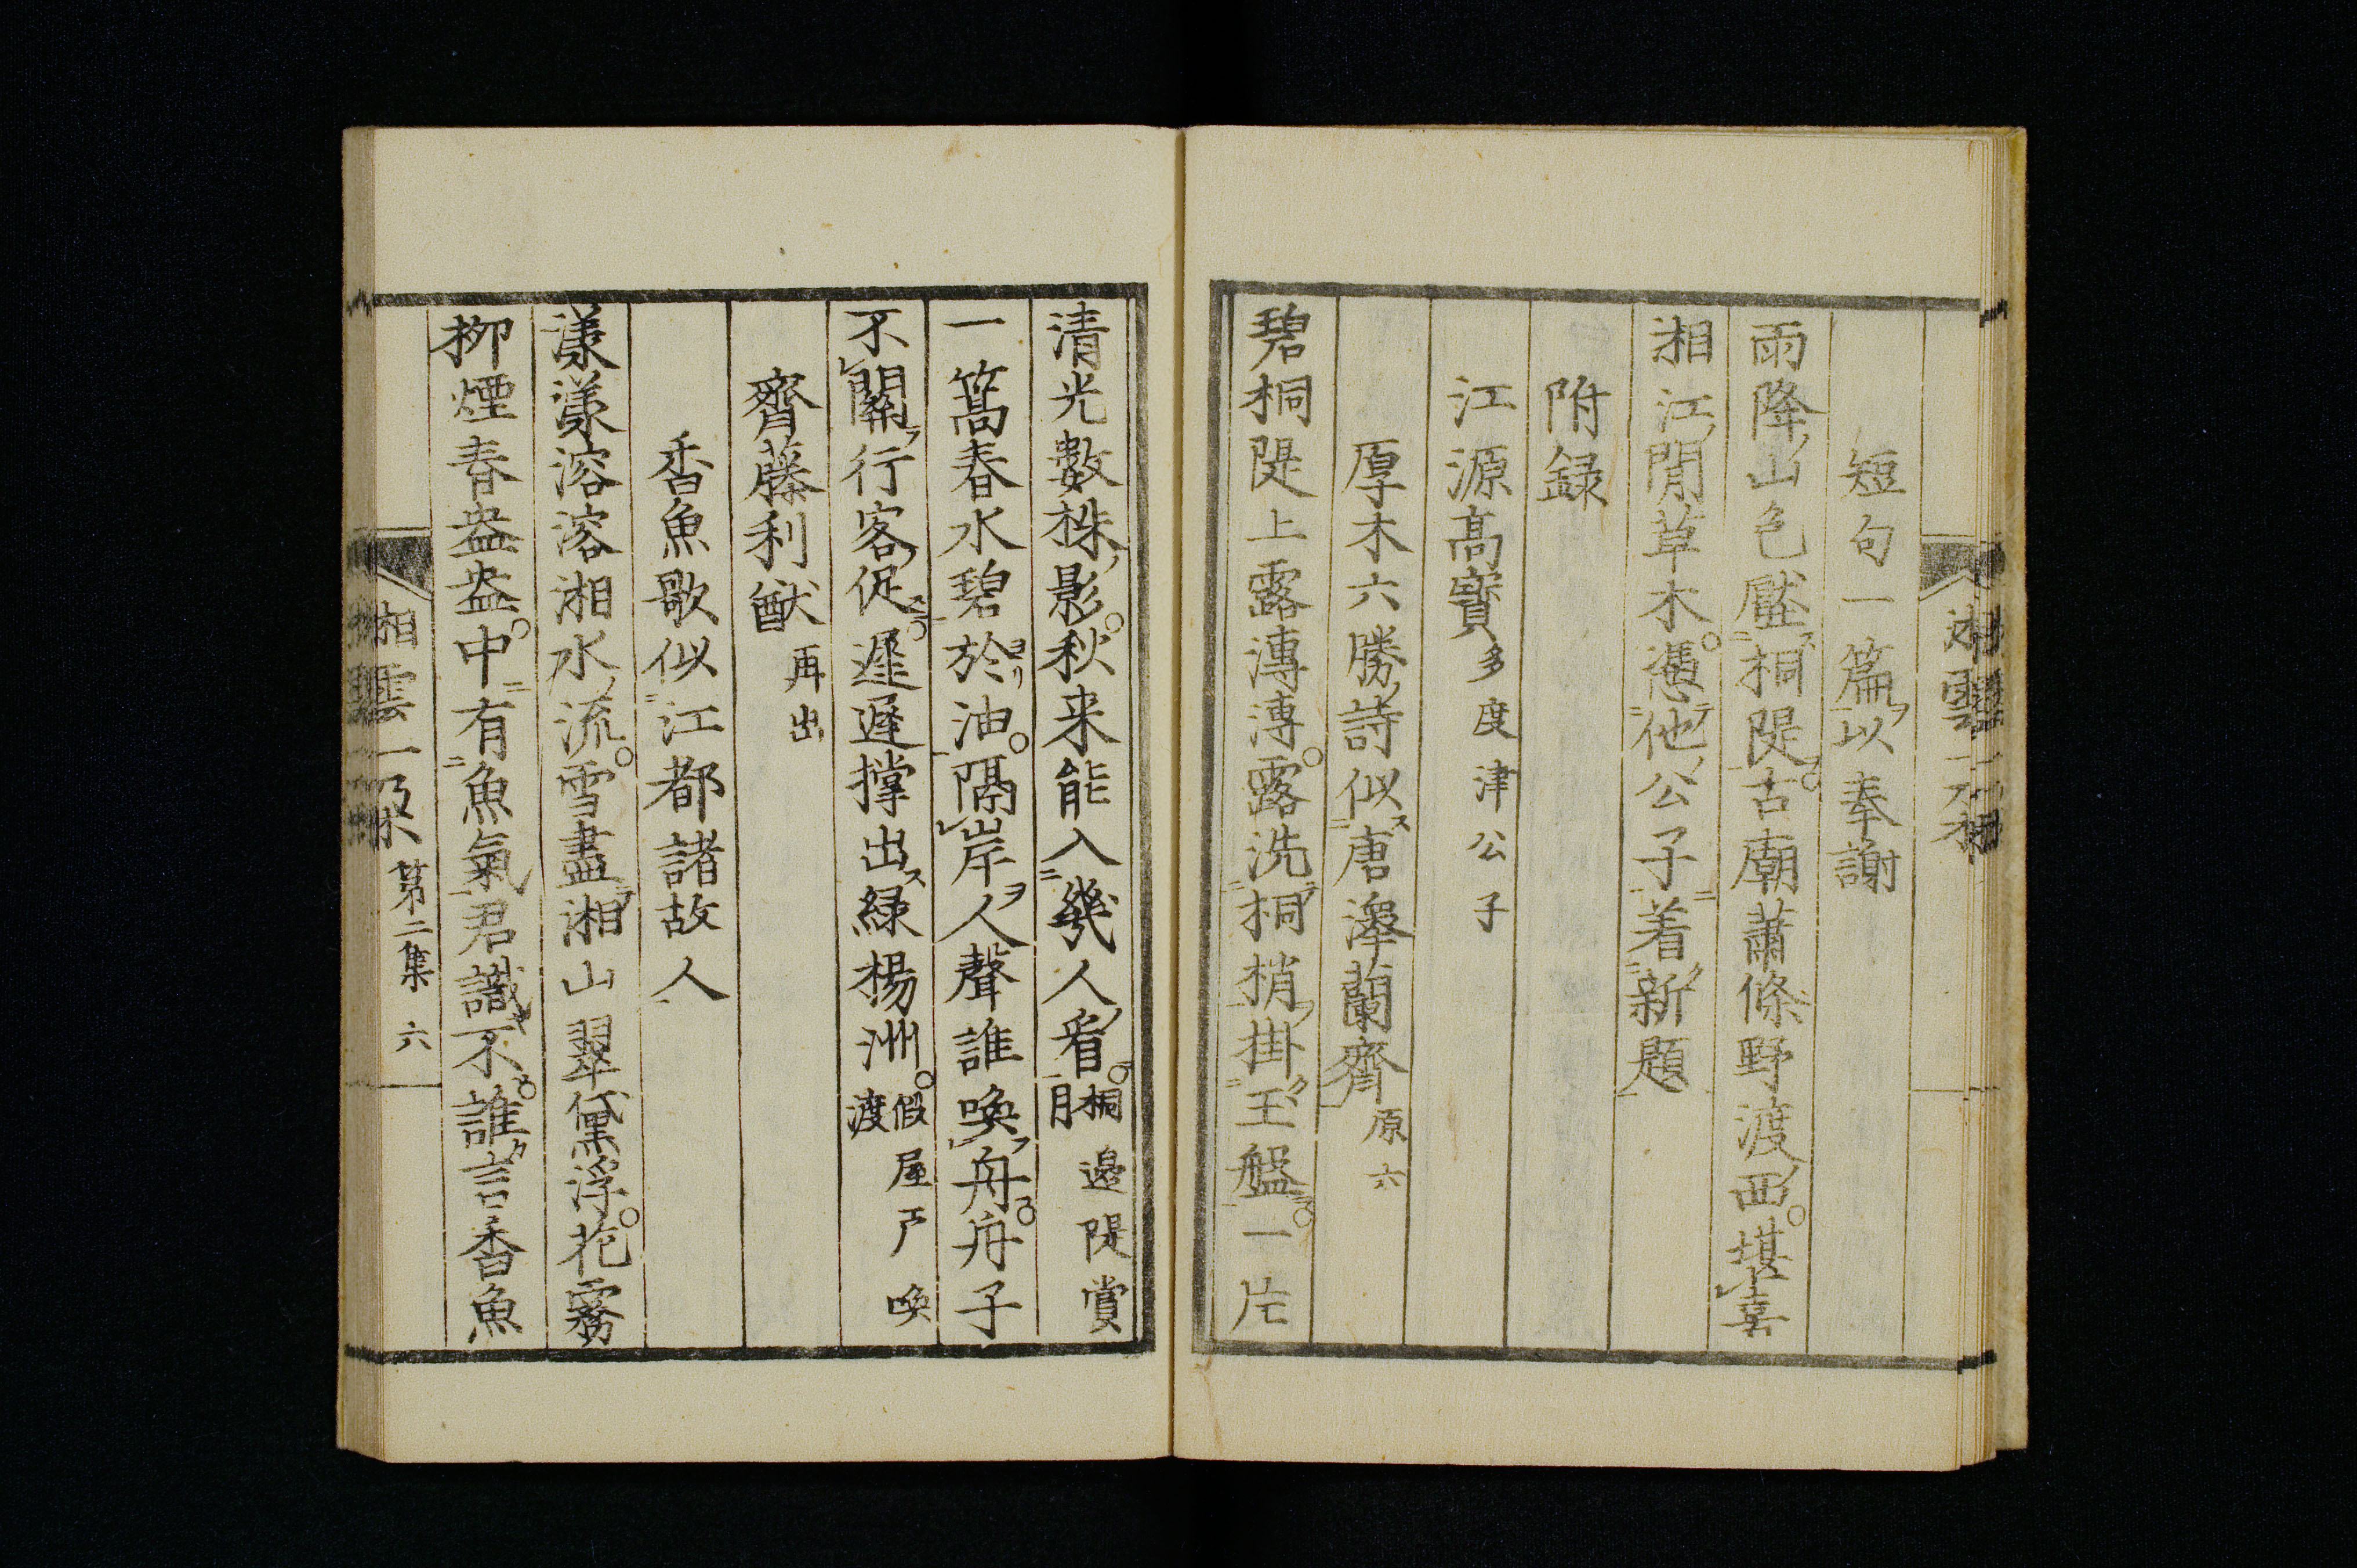 短句一篇以奉謝
雨降山色壓桐隄古廟蕭條野渡西堪喜
湘江閒草木憑他公子着新題
附録
江源高寶多度津公子
厚木六勝詩似唐澤蘭齊原六
碧桐隄上露漙漙露洗桐梢掛玉盤一片
清光數株影秋来能入幾人看桐邊隄賞月
一篙春水碧於油隔岸人聲誰喚舟舟子
不關行客促遲遲撑出緑楊洲假屋戸喚渡
齊藤利猷再出
香魚歌似江都諸故人
漾漾溶溶湘水流雪盡湘山翠黛浮花霧
柳煙春盎盎中有魚氣君識不誰言香魚
湘雲一朶第二集 六